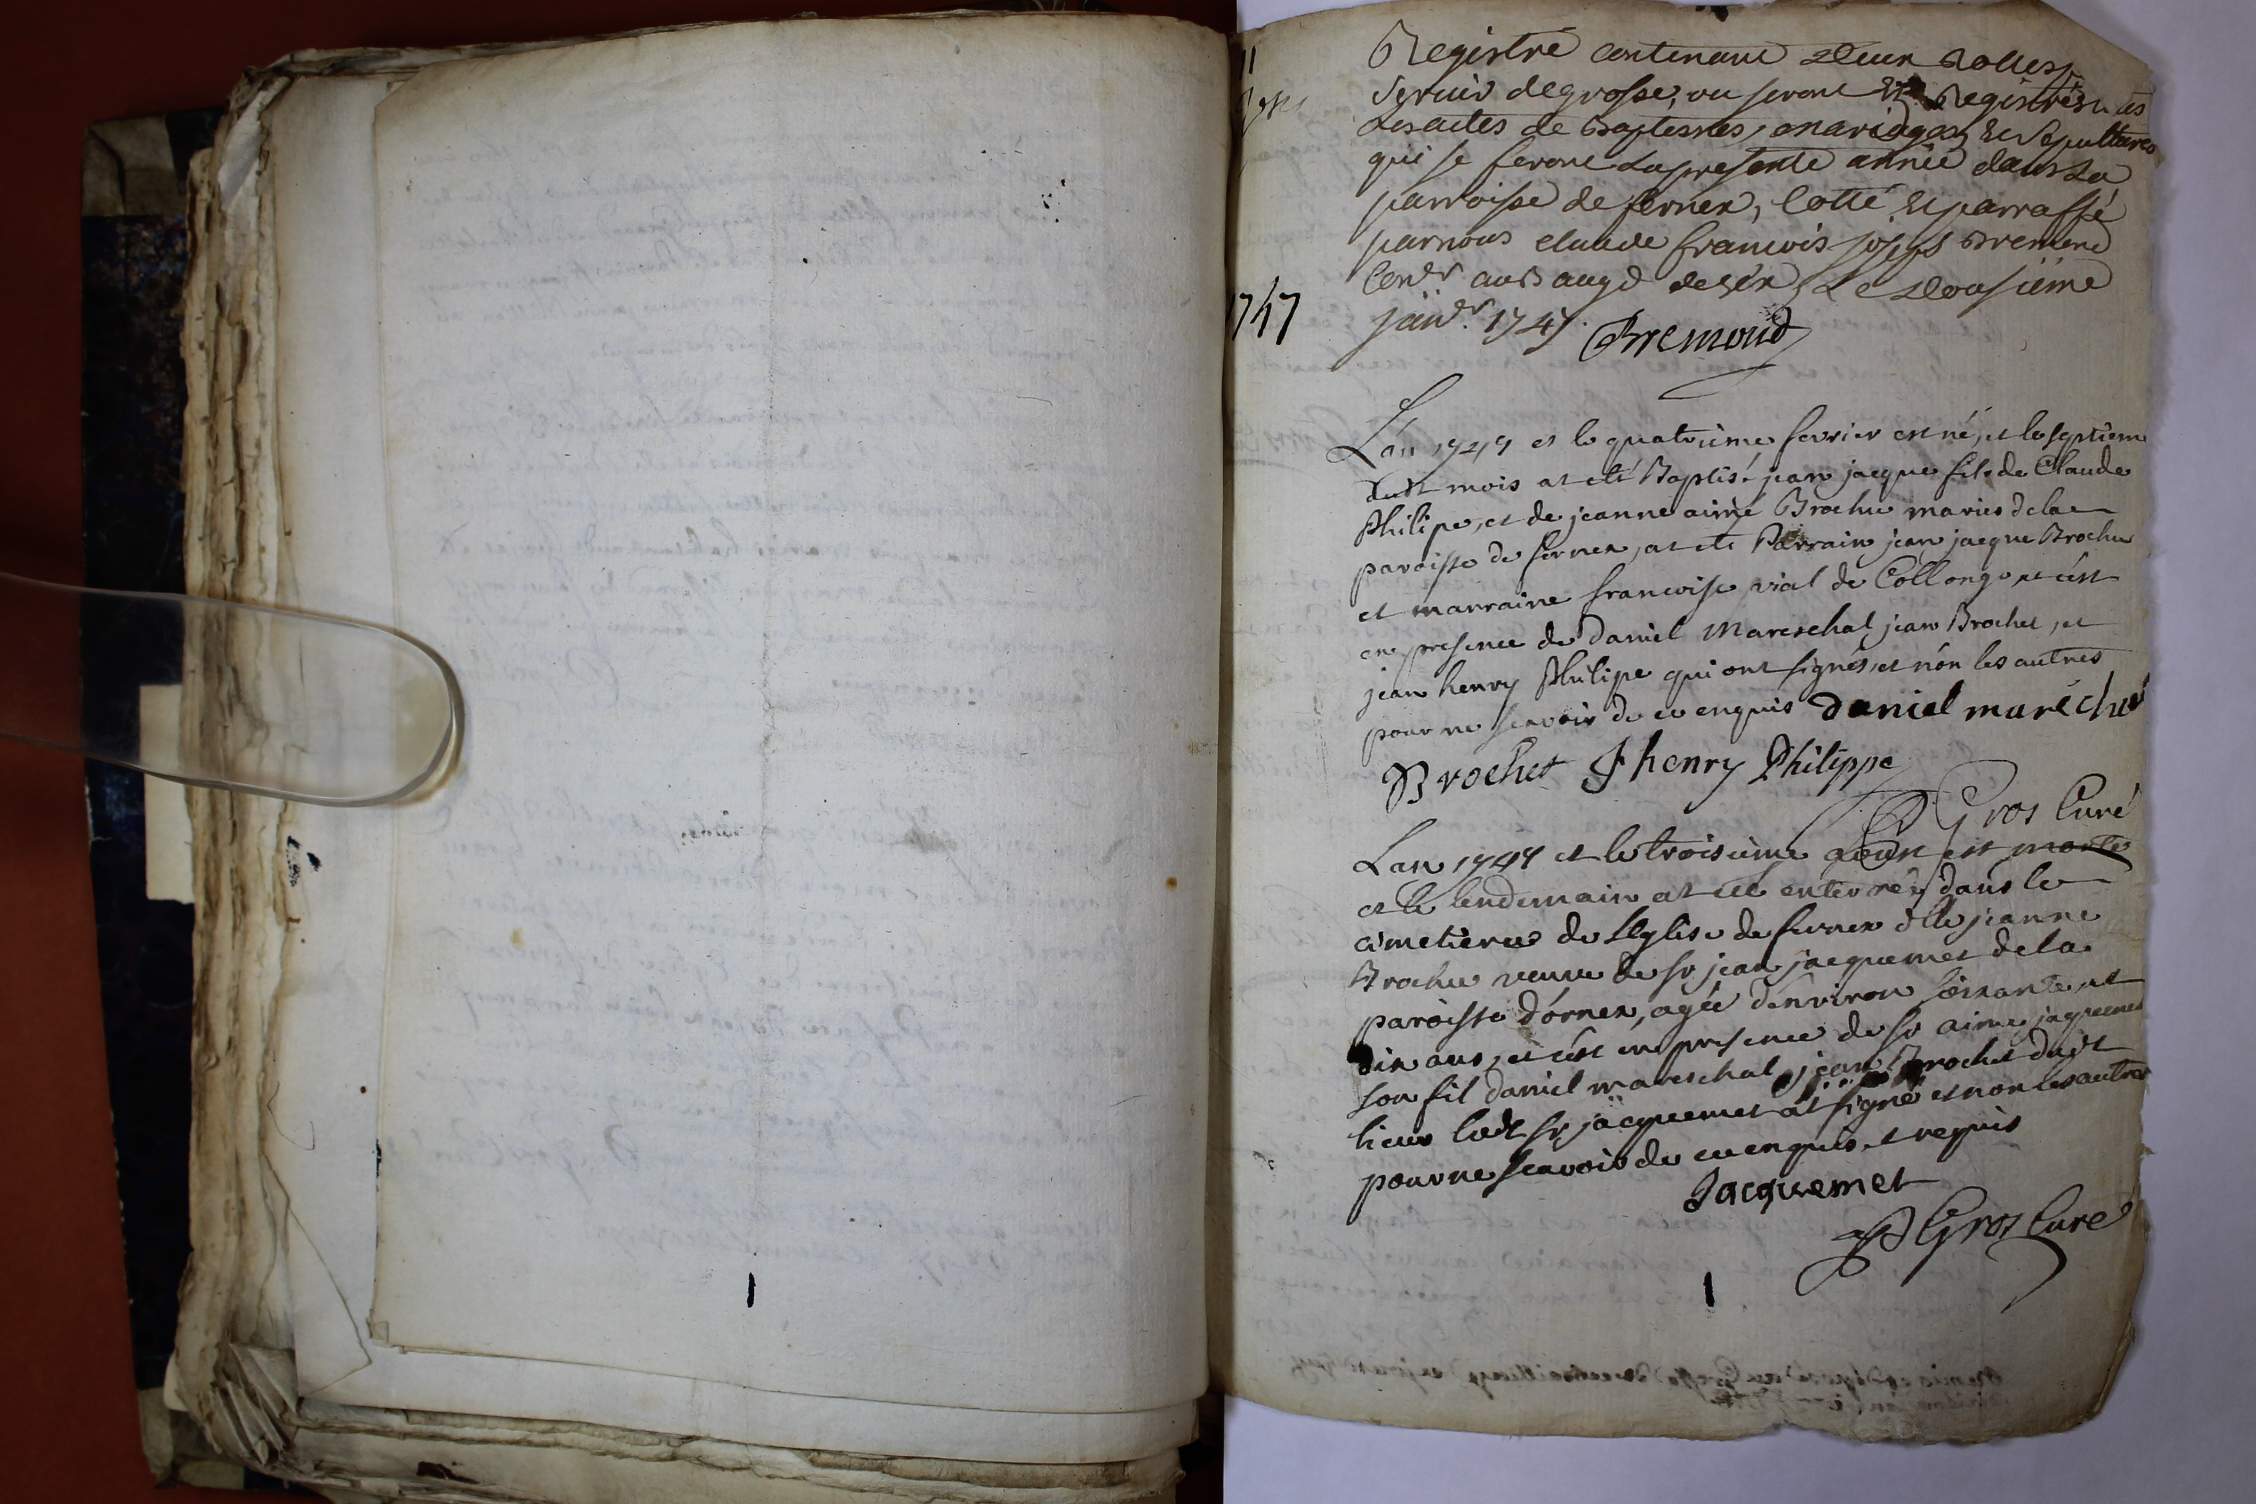 Registre contenant deux rolles,
Servir de grosse, ou seront Registrés
Les actes de Baptesmes, mariages, et Sepultures
qui se feront La presente année dans La
parroisse de fernex, Cotté et parraffé
par nous claude francois joseph Bremond
Con.er au Baage de Gex, Le douzième
1747
janv.er 1747. Bremond
L'an 1747 et le quatrieme fevrier est né, et le septieme
dudt mois at eté Baptisé jean jacque fils de Claude
Philipe, et de jeanne aimé Brochu mariés de la
paroisse de fernex, at eté Parrain jean jacque Brochu
et marraine francoise vial de Collonge, et c'est
en presence de Daniel Mareschal jean Brochet, et
jean henry Philipe qui ont signés, et nón les autres
pour ne scavoir de ce enquis daniel maréchal
Brochet J henry Philippe
P Gros Curé
Lan 1747 et le troisieme aoust est morte
et le lendemain at eté enterrée dans le
cimetiere de L'Eglise de fernex dlle jeanne
Brochu veuve de sr jean jacquemet de la
paroisse d'ornex, agée d'environ soixante et
dix ans, et c'est en presence de sr aimé jaquemet
son fil daniel mareschal, jean Brochet dudt
lieux ledt sr jacquemet at signé et non les autres
pour ne scavoir de ce enquis, et requis
Jacquemet
P Gros Curé